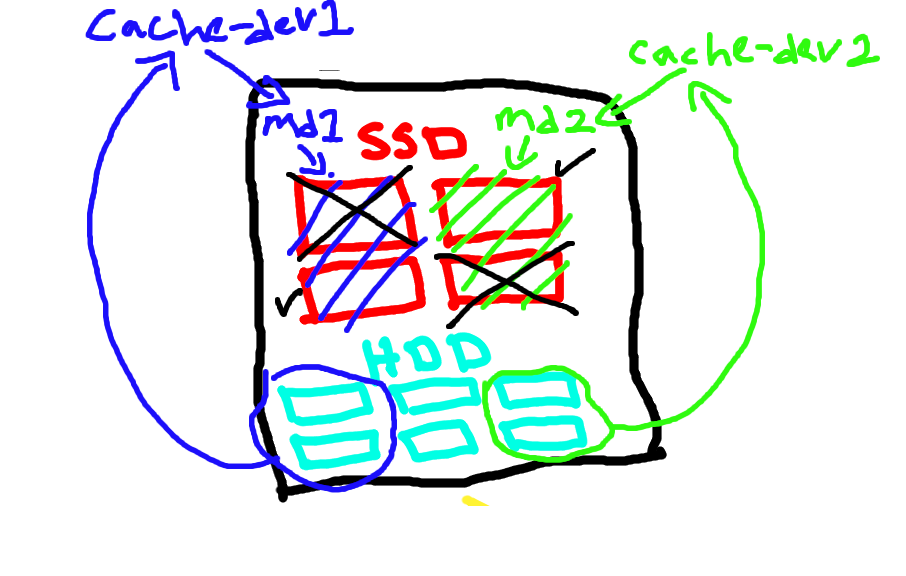 Cache-dev1
cache-dev2
md1
SSD
md2
HDD